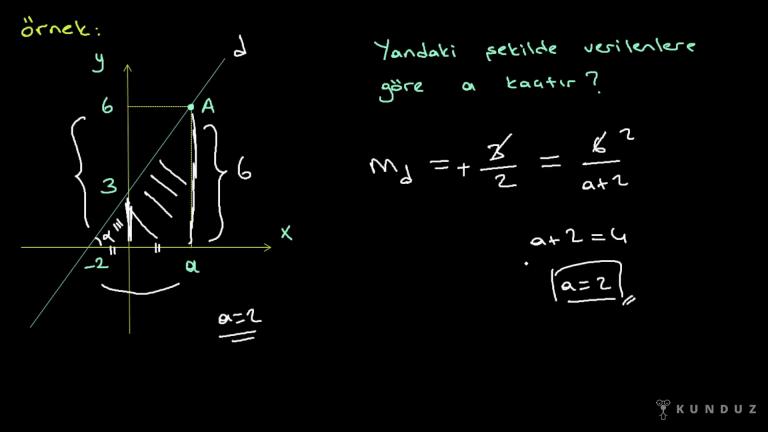 örnek:
Yandaki şekilde verilenlere
göre a kaçtır?
d
y
6
A
6
3
α
x
-2
a
a=2
m_d = + 3/2 = 6/a+2
2
a+2=4
a=2
KUNDUZ